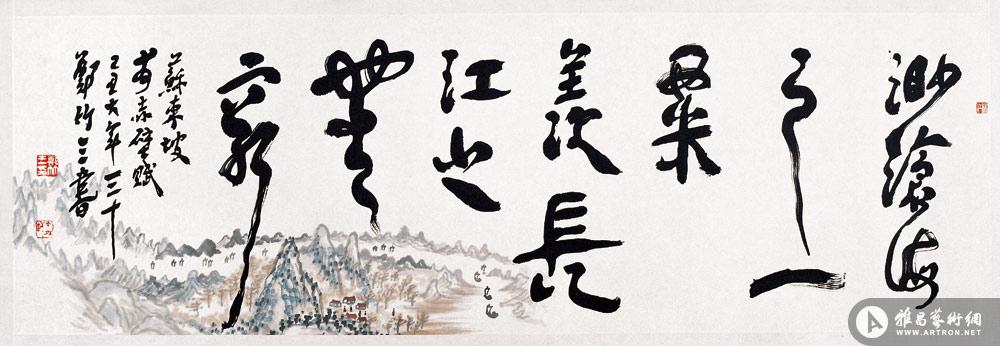 渺滄海
之一
粟
羨長
江之
無
窮
蘇東坡
前赤壁賦
己丑大年三十
鄭竹三書
雅昌藝術網
WWW.ARTRON.NET